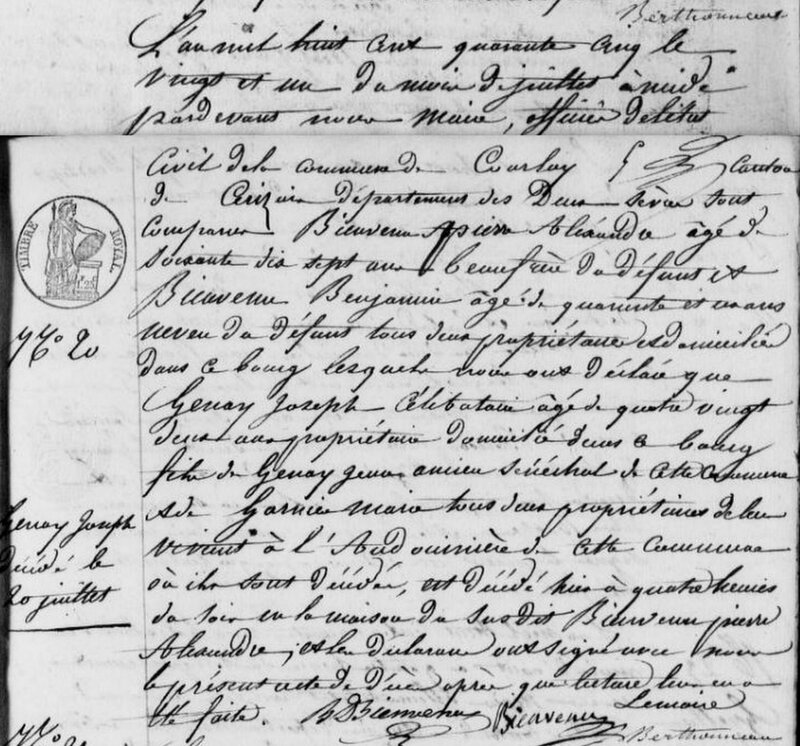 Berthonneau
L'an mil huit cent quarante cinq le
vingt et un du mois de juillet à midi
pardevant nous maire, officier de l'état
Civil de la commune de Courlay Canton
de Cerizais département des Deux Sèvres sont
comparus Bienvenu pierre Alexandre âgé de
soixante dix sept ans beaufrère du défunt et
Bienvenu Benjamin âgé de quarante et un ans
neveu du défunt tous deux propriétaires et domiciliés
dans ce bourg lesquels nous ont déclaré que
Genay Joseph Célibataire âgé de quatre vingt
deux ans propriétaire domicilié dans ce bourg
fils de Genay ancien sénéchal de cette commune
et de Garnier marie tous deux propriétaires de leur
vivant à l'Audouinière de cette commune
où ils sont décédés, est décédé hier à quatre heures
du soir en la maison du susdit Bienvenu pierre
Alexandre, et les déclarans ont signé avec nous
le présent acte de décès après que lecture leur en a
été faite. Bienvenu Bienvenu Le maire
Berthonneau
TIMBRE ROYAL
No 20
Genay Joseph
décédé le
20 juillet